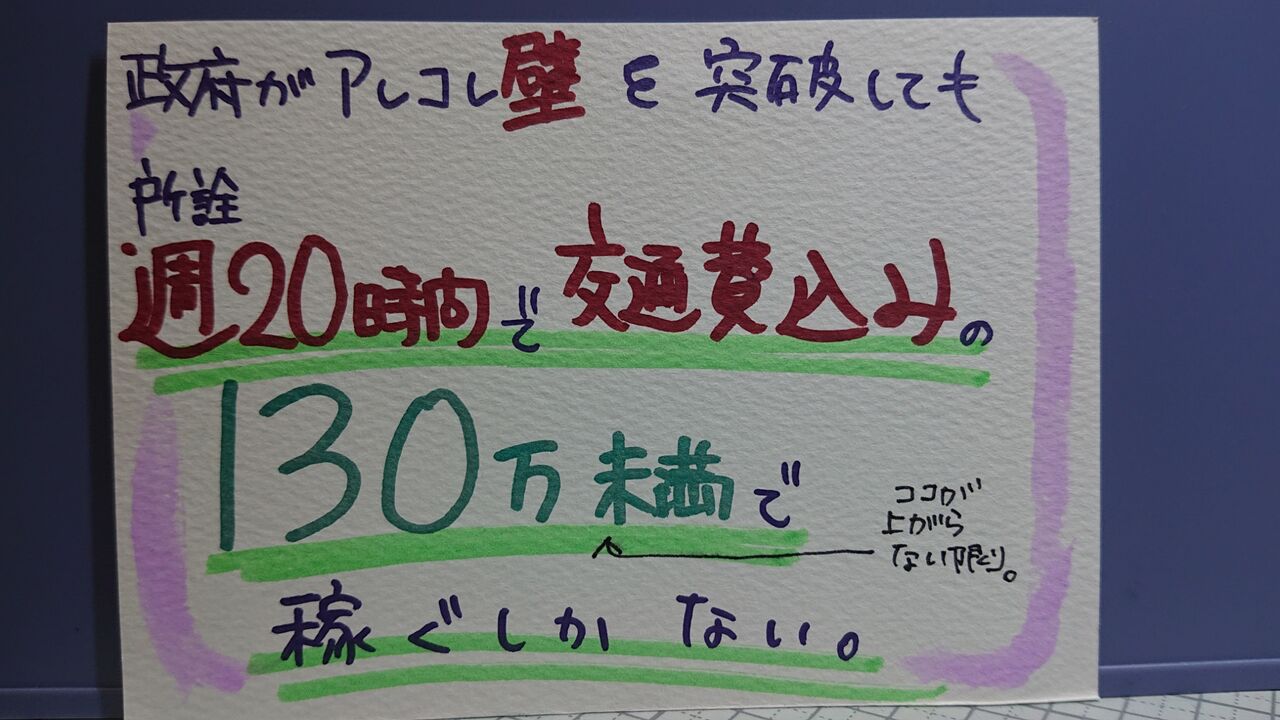 政府がアレコレ壁を突破しても
所詮
週20時間で交通費込みの
130万未満で
ココが
上がら
ない限り。
稼ぐしかない。